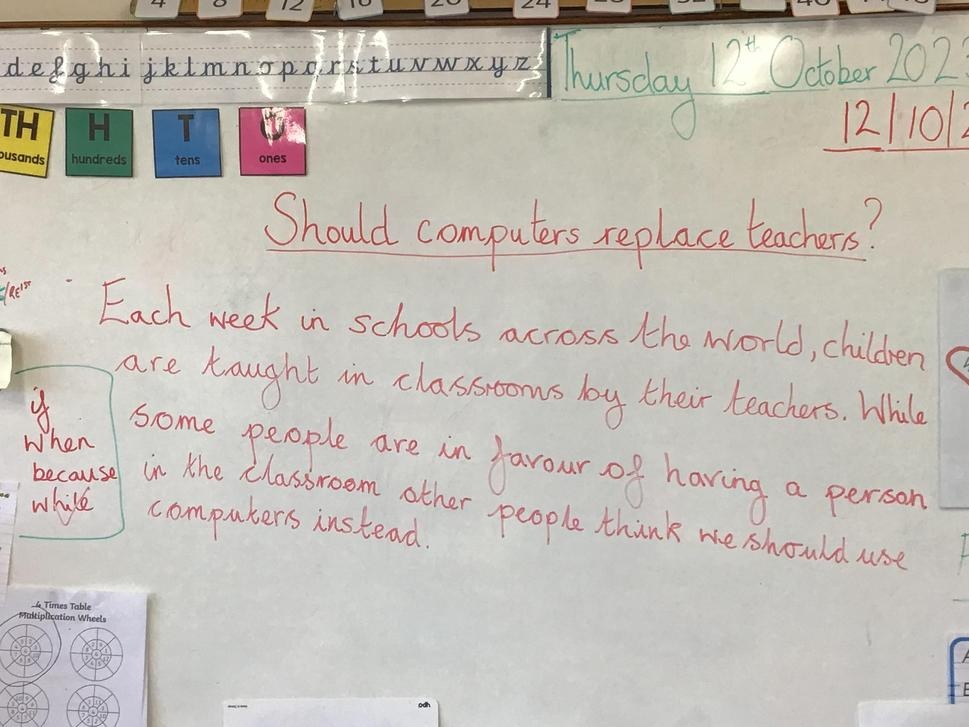 4 8 12 16 20 24
d e f g h i j k l m n o p q r s t u v w x y z
Thursday 12th October 202
12/10/2
TH H T O
ousands hundreds tens ones
Should computers replace teachers?
Each week in schools across the world, children
are taught in classrooms by their teachers. While
some people are in favour of having a person
in the classroom other people think we should use
computers instead.
if
when
because
while
4 Times Table
Multiplication Wheels